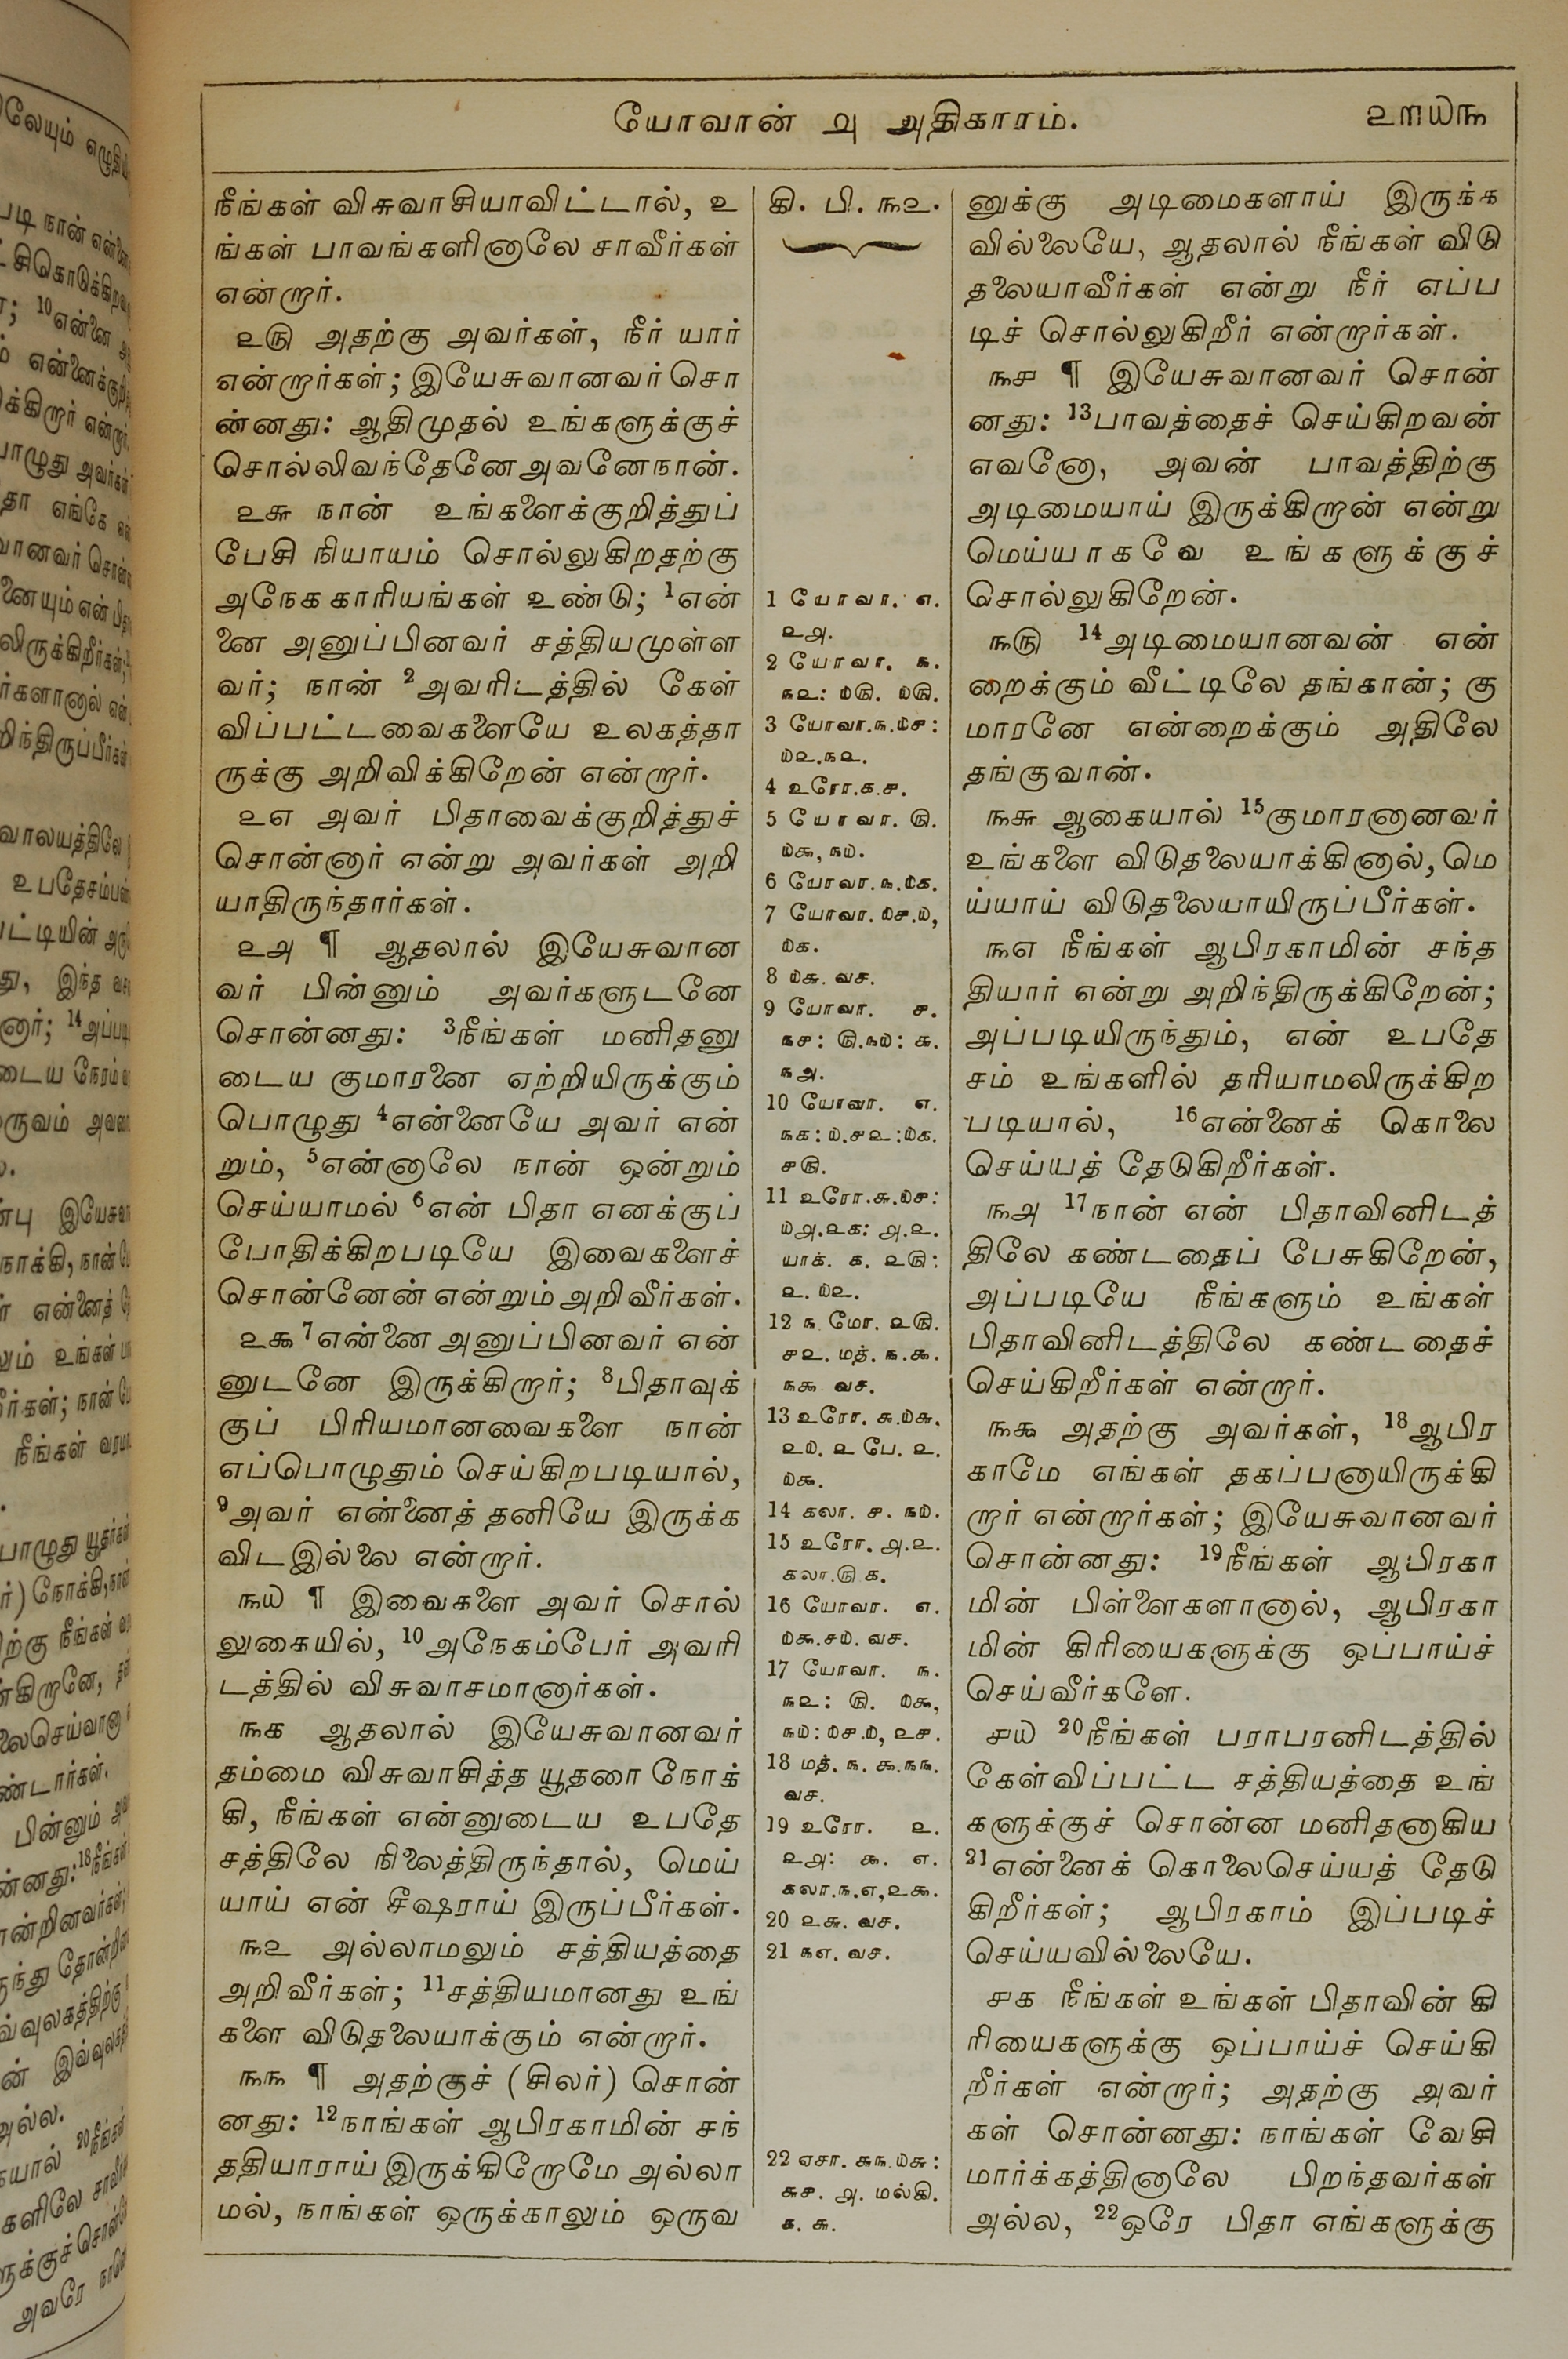 யோவான் ௮ அதிகாரம்.
௨௱௰௩
நீங்கள் விசுவாசியாவிட்டால், உ
ங்கள் பாவங்களினாலே சாவீர்கள்
என்றார்.
௨௫ அதற்கு அவர்கள், நீர் யார்
என்றார்கள்; இயேசுவானவர் சொ
ன்னது: ஆதிமுதல் உங்களுக்குச்
சொல்லிவந்தேனேஅவனேநான்.
௨௬ நான் உங்களைக்குறித்துப்
பேசி நியாயம் சொல்லுகிறதற்கு
அநேககாரியங்கள் உண்டு; 1என்
னை அனுப்பினவர் சத்தியமுள்ள
வர்; நான் 2அவரிடத்தில் கேள்
விப்பட்டவைகளையே உலகத்தா
ருக்கு அறிவிக்கிறேன் என்றார்.
௨௭ அவர் பிதாவைக்குறித்துச்
சொன்னார் என்று அவர்கள் அறி
யாதிருந்தார்கள்.
௨௮ ¶ ஆதலால் இயேசுவான
வர் பின்னும் அவர்களுடனே
சொன்னது: 3நீங்கள் மனிதனு
டைய குமாரனை ஏற்றியிருக்கும்
பொழுது 4என்னையே அவர் என்
றும், 5என்னாலே நான் ஒன்றும்
செய்யாமல் 6என் பிதா எனக்குப்
போதிக்கிறபடியே இவைகளைச்
சொன்னேன்என்றும்அறிவீர்கள்.
௨௯ 7என்னை அனுப்பினவர் என்
னுடனே இருக்கிறார்; 8பிதாவுக்
குப் பிரியமானவைகளை நான்
எப்பொழுதும் செய்கிறபடியால்,
9அவர் என்னைத் தனியே இருக்க
விடஇல்லை என்றார்.
௩௰ ¶ இவைகளை அவர் சொல்
லுகையில், 10அநேகம்பேர் அவரி
டத்தில் விசுவாசமானார்கள்.
௩௧ ஆதலால் இயேசுவானவர்
தம்மை விசுவாசித்த யூதரை நோக்
கி, நீங்கள் என்னுடைய உபதே
சத்திலே நிலைத்திருந்தால், மெய்
யாய் என் சீஷராய் இருப்பீர்கள்.
௩௨ அல்லாமலும் சத்தியத்தை
அறிவீர்கள்; 11சத்தியமானது உங்
களை விடுதலையாக்கும் என்றார்.
௩௩ ¶ அதற்குச் (சிலர்) சொன்
னது: 12நாங்கள் ஆபிரகாமின் சந்
ததியாராய் இருக்கிறோமே அல்லா
மல், நாங்கள் ஒருக்காலும் ஒருவ
கி. பி. ௩௨.
1 யோவா. ௭.
௨௮.
2 யோவா. ௩.
௩௨: ௰௫. ௰௫.
3 யோவா.௩.௰௪:
௰௨.௩௨.
4 உரோ.௧.௪.
5 யோவா. ௫.
௰௯, ௩௰.
6 யோவா.௩.௰௧.
7 யோவா. ௰௪.௰,
௰௧.
8 ௰௬. வச.
9 யோவா. ௪.
௩௪: ௫.௩௰: ௬.
௩௮.
10 யோவா. ௭.
௩௧: ௰.௪௨:௰௧.
௪௫.
11 உரோ.௬.௰௪:
௰௮.௨௧: ௮.௨.
யாக். ௧. ௨௫:
௨. ௰௨.
12 ௩ மோ. ௨௫.
௪௨. மத். ௩.௯.
௩௯ வச.
13 உரோ. ௬.௰௬.
௨௰. ௨ பே. ௨.
௰௯.
14 கலா. ௪. ௩௰.
15 உரோ. ௮.௨.
கலா.௫ ௧.
16 யோவா. ௭.
௰௯.௪௰. வச.
17 யோவா. ௩.
௩௨: ௫. ௰௯,
௩௰: ௰௪.௰, ௨௪.
18 மத். ௩. ௯.௩௩.
வச.
19 உரோ. ௨.
௨௮: ௯. ௭.
கலா.௩.௭,௨௯.
20 ௨௬. வச.
21 ௩௭. வச.
22 ஏசா. ௬௩.௰௬:
௬௪. ௮. மல்கி.
௧. ௬.
னுக்கு அடிமைகளாய் இருக்க
வில்லையே, ஆதலால் நீங்கள் விடு
தலையாவீர்கள் என்று நீர் எப்ப
டிச் சொல்லுகிறீர் என்றார்கள்.
௩௪ ¶ இயேசுவானவர் சொன்
னது: 13பாவத்தைச் செய்கிறவன்
எவனோ, அவன் பாவத்திற்கு
அடிமையாய் இருக்கிறான் என்று
மெய்யாகவே உங்களுக்குச்
சொல்லுகிறேன்.
௩௫ 14அடிமையானவன் என்
றைக்கும் வீட்டிலே தங்கான்; கு
மாரனே என்றைக்கும் அதிலே
தங்குவான்.
௩௬ ஆகையால் 15குமாரனானவர்
உங்களை விடுதலையாக்கினால், மெ
ய்யாய் விடுதலையாயிருப்பீர்கள்.
௩௭ நீங்கள் ஆபிரகாமின் சந்த
தியார் என்று அறிந்திருக்கிறேன்;
அப்படியிருந்தும், என் உபதே
சம் உங்களில் தரியாமலிருக்கிற
படியால், 16என்னைக் கொலை
செய்யத் தேடுகிறீர்கள்.
௩௮ 17நான் என் பிதாவினிடத்
திலே கண்டதைப் பேசுகிறேன்,
அப்படியே நீங்களும் உங்கள்
பிதாவினிடத்திலே கண்டதைச்
செய்கிறீர்கள் என்றார்.
௩௯ அதற்கு அவர்கள், 18ஆபிர
காமே எங்கள் தகப்பனாயிருக்கி
றார் என்றார்கள்; இயேசுவானவர்
சொன்னது: 19நீங்கள் ஆபிரகா
மின் பிள்ளைகளானால், ஆபிரகா
மின் கிரியைகளுக்கு ஒப்பாய்ச்
செய்வீர்களே.
௪௰ 20நீங்கள் பராபரனிடத்தில்
கேள்விப்பட்ட சத்தியத்தை உங்
களுக்குச் சொன்ன மனிதனாகிய
21என்னைக் கொலைசெய்யத் தேடு
கிறீர்கள்; ஆபிரகாம் இப்படிச்
செய்யவில்லையே.
௪௧ நீங்கள் உங்கள் பிதாவின் கி
ரியைகளுக்கு ஒப்பாய்ச் செய்கி
றீர்கள் என்றார்; அதற்கு அவர்
கள் சொன்னது: நாங்கள் வேசி
மார்க்கத்தினாலே பிறந்தவர்கள்
அல்ல, 22ஒரே பிதா எங்களுக்கு